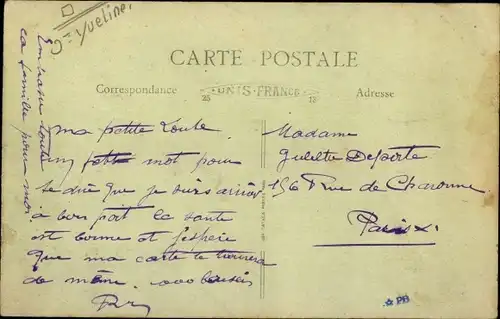 Yvelines
CARTE POSTALE
Correspondance
25 UNIS-FRANCE 15
Adresse
Embrasse toute
ta famille pour moi
Ma petite Loulte
un petit mot pour
te dire que je suis arrivé
à bon port la santé
est bonne et j'espère
que ma carte te trouvera
de même. 000 baisers
Madame
Juliette Deporte
156 Rue de Charonne
Paris XI
PB